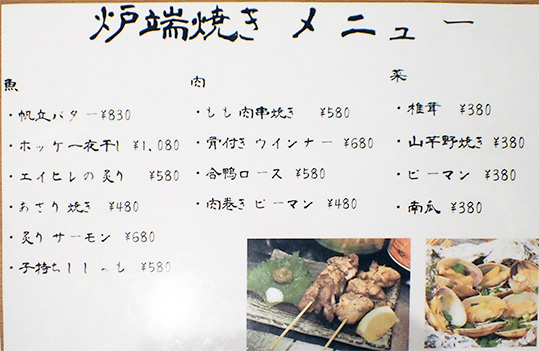 炉端焼き メニュー
魚
・帆立バター ¥830
・ホッケ一夜干し ¥1,080
・エイヒレの炙り ¥580
・あさり焼き ¥480
・炙りサーモン ¥680
・子持ちししゃも ¥580
肉
・もも肉串焼き ¥580
・骨付きウインナー ¥680
・合鴨ロース ¥580
・肉巻きピーマン ¥480
菜
・椎茸 ¥380
・山芋野焼き ¥380
・ピーマン ¥380
・南瓜 ¥380